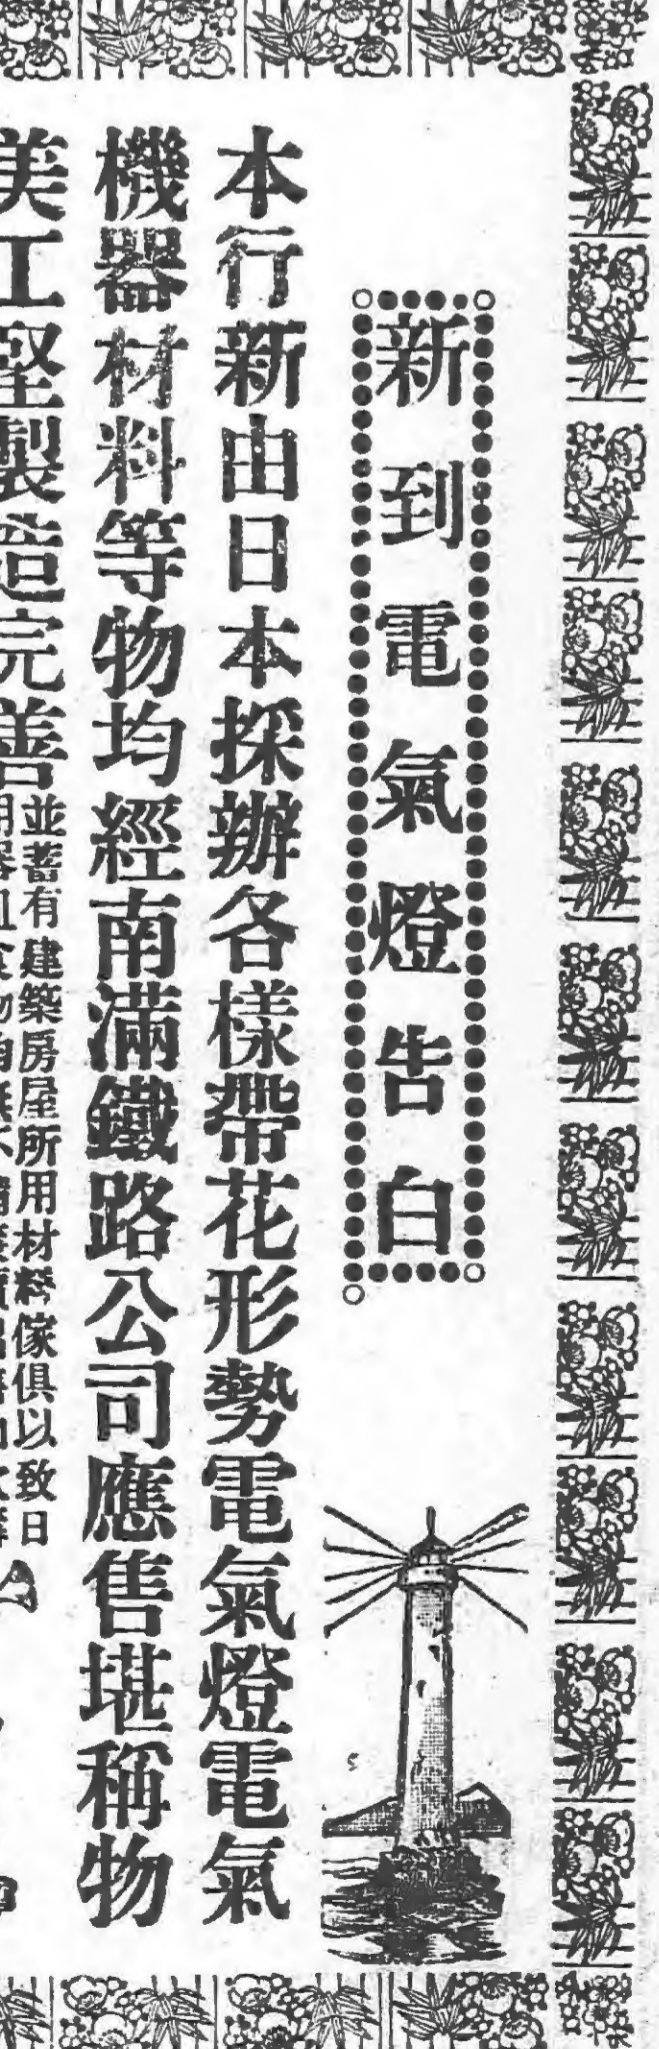 新到電氣燈告白
本行新由日本採辦各樣帶花形勢電氣燈電氣
機器材料等物均經南滿鐵路公司應售堪稱物
美工堅製造完善
並蓄有建築房屋所用材料傢俱以致日